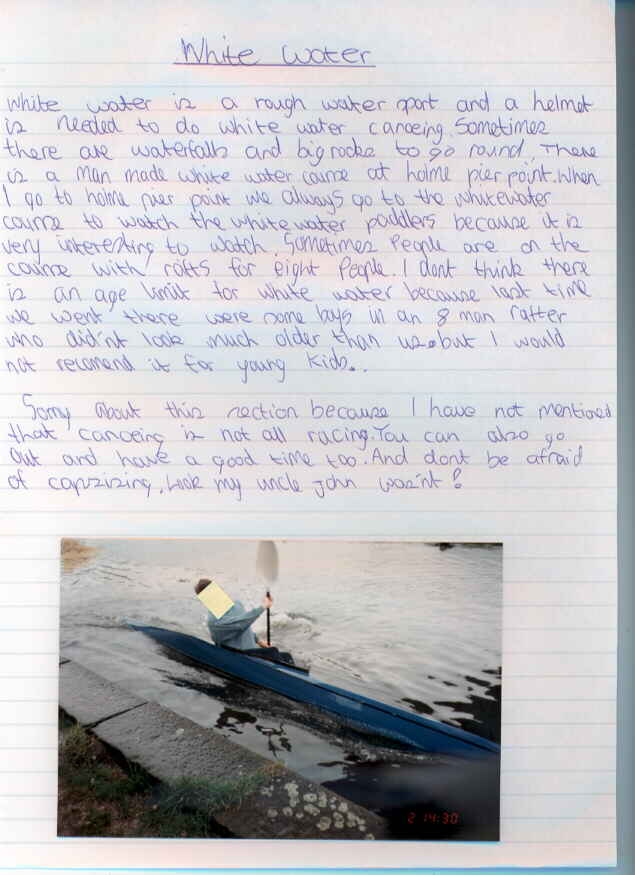 White water
White water is a rough water sport and a helmet
is needed to do white water canoeing. Sometimes
there are waterfalls and big rocks to go round. There
is a man made white water course at holme pier point. When
I go to holme pier point we always go to the whitewater
course to watch the white water paddlers because it is
very interesting to watch. Sometimes People are on the
course with rafts for eight People. I dont think there
is an age limit for white water because last time
we went there were some boys in an 8 man rafter
who did'nt look much older than us. but I would
not recomend it for young kids..
Sorry about this section because I have not mentioned
that canoeing is not all racing. You can also go
out and have a good time too. And dont be afraid
of capizizing. Look my uncle John was'nt!
2 14:30